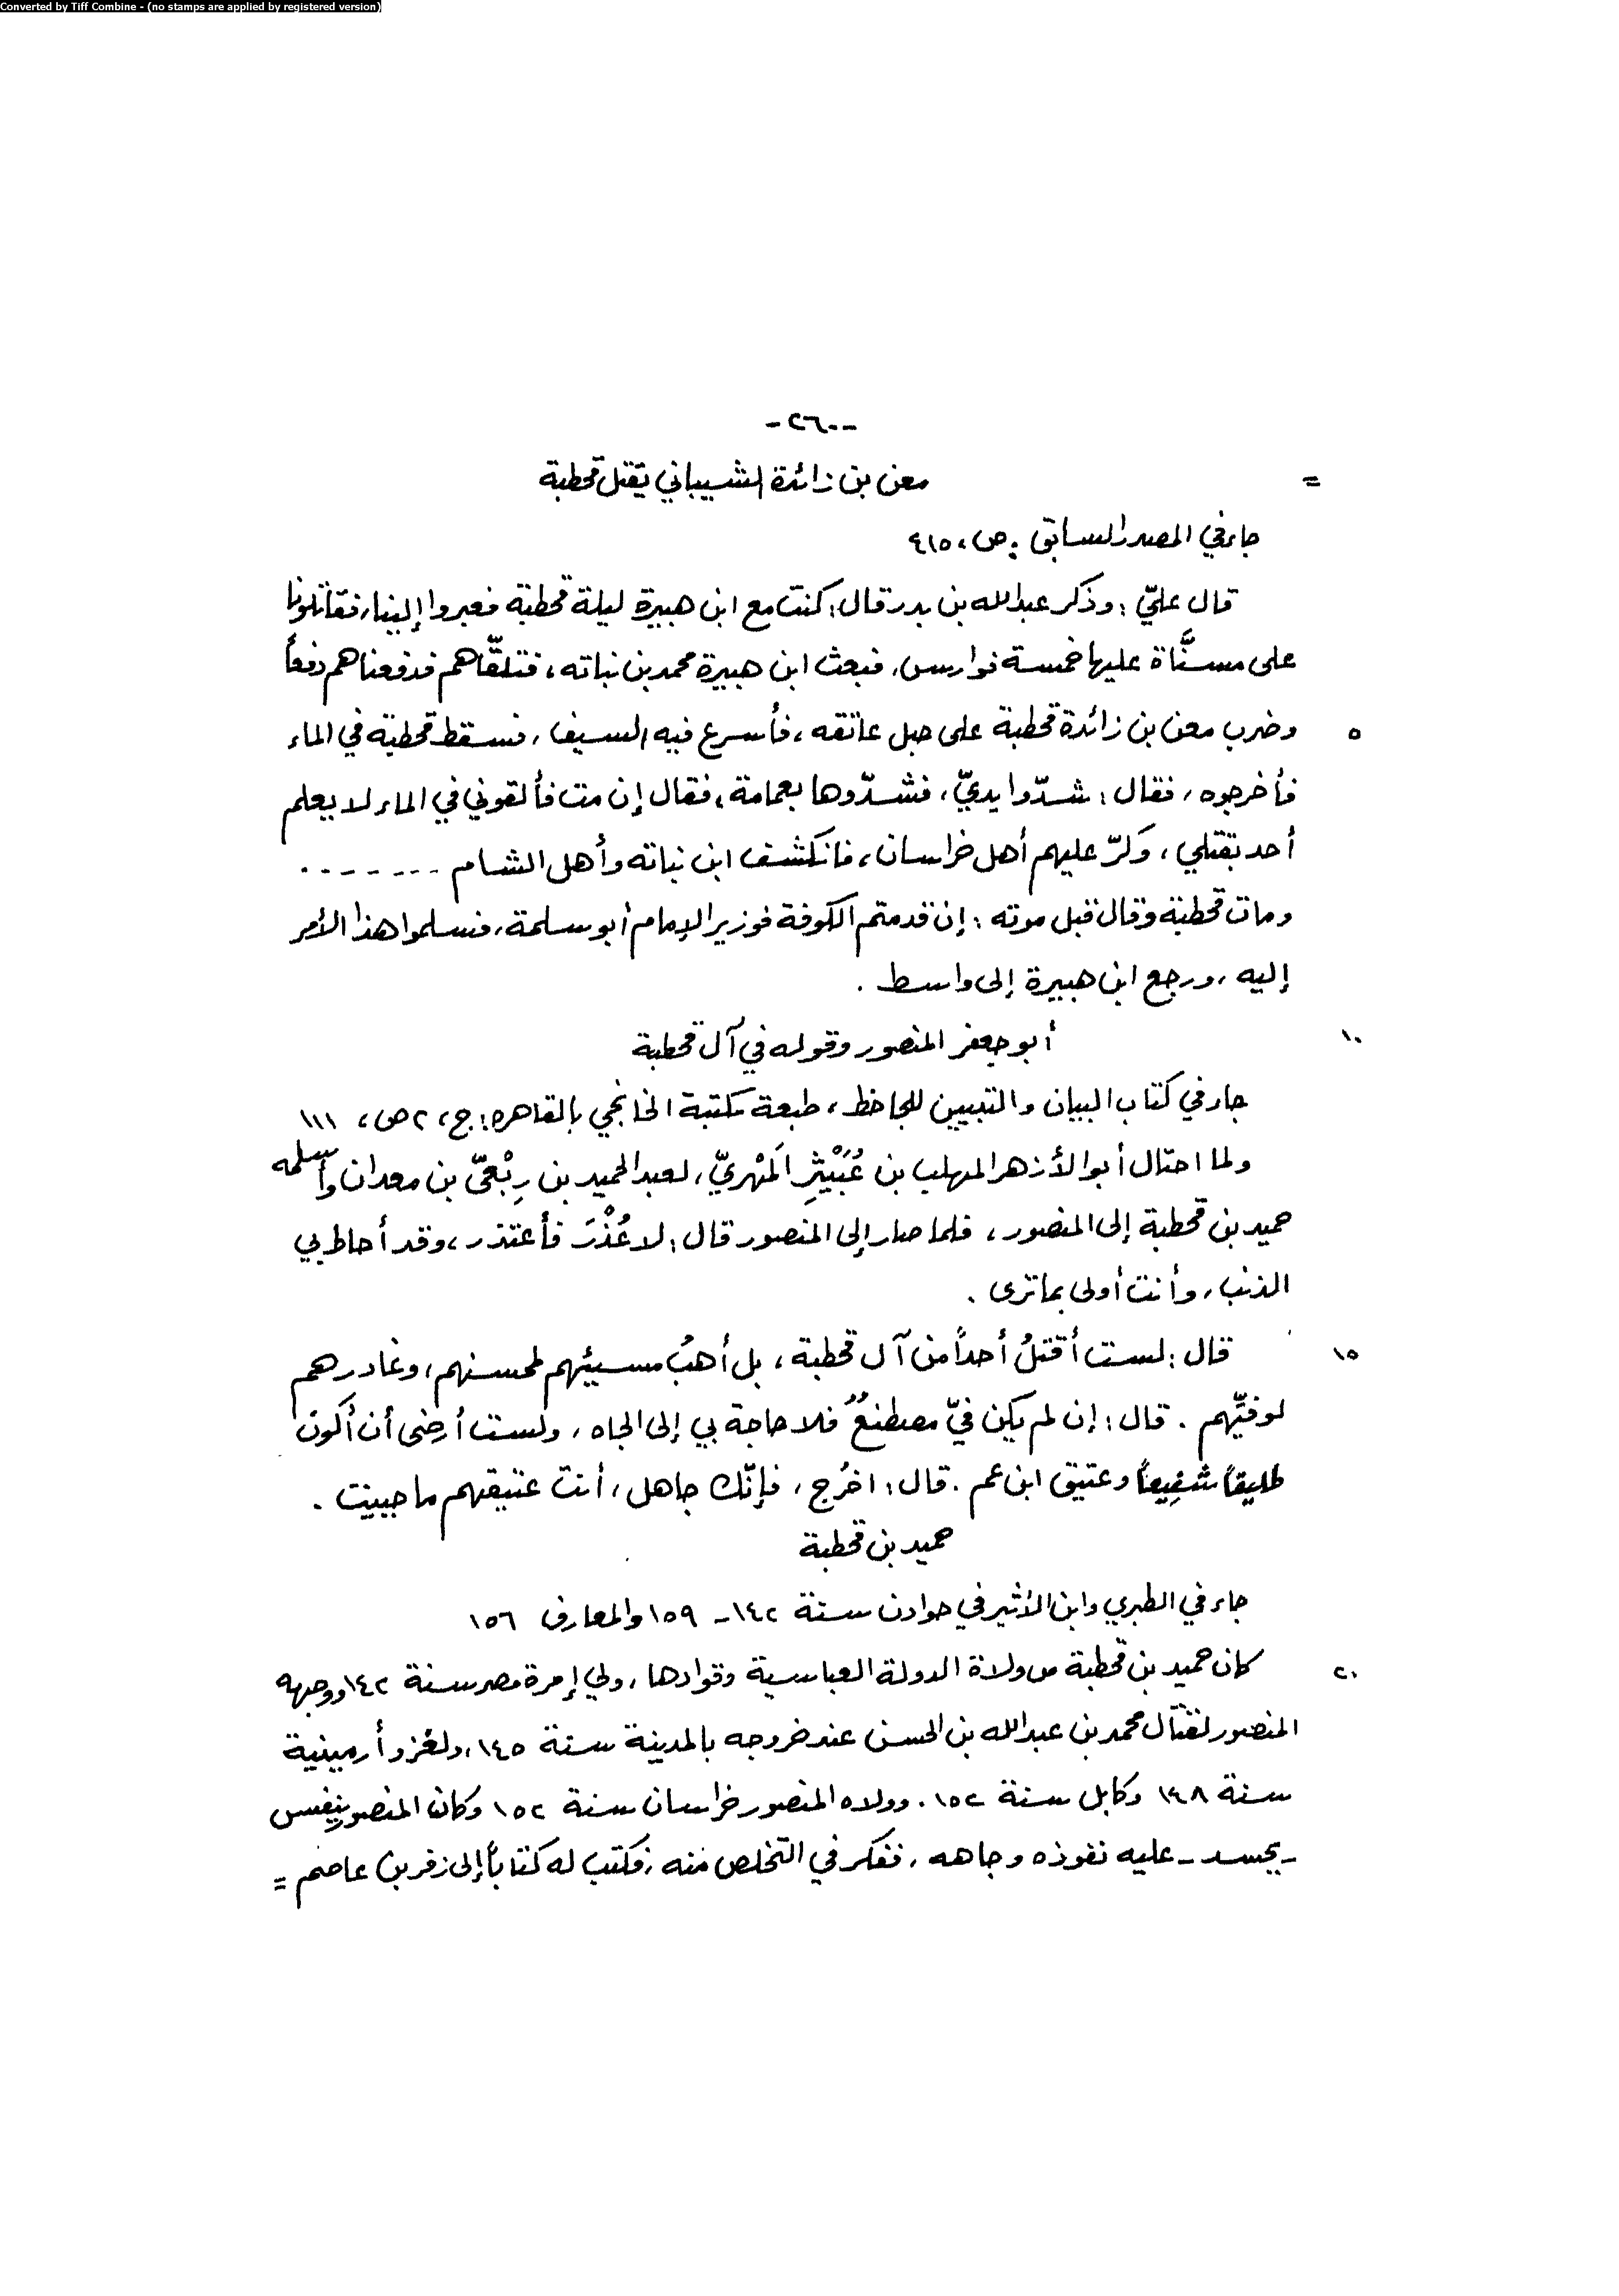 Converted by Tiff Combine - (no stamps are applied by registered version)
-٢٦٠-
= معن بن زائدة الشيباني يقتل قحطبة
جاء في المصدر السابق: ص، ٤١٥
قال عليّ: وذكر عبدالله بن بدر قال: كنت مع ابن هبيرة ليلة قحطبة فعبروا إلينا، فقاتلونا
على مسنَّاة عليها خمسة فوارس، فبعث ابن هبيرة محمد بن نباته، فتلقّاهم فدفعناهم دفعاً
٥ وضرب معن بن زائدة قحطبة على حبل عاتقه، فأسرع فيه السيف، فسقط قحطبة في الماء
فأخرجوه، فقال: شدّوا يديّ، فشدّوها بعمامة، فقال إن مت فألقوني في الماء لا يعلم
أحد بقتلي، وكرّ عليهم أهل خراسان، فانكشف ابن نباته وأهل الشام .......
ومات قحطبة وقال قبل موته: إن قدمتم الكوفة فوزير الإمام أبو سلمة، فسلموا هذا الأمر
إليه، ورجع ابن هبيرة إلى واسط.
١٠ أبو جعفر المنصور وقوله في آل قحطبة
جاء في كتاب البيان والتبيين للجاحظ، طبعة مكتبة الخانجي بالقاهرة: ج، ٢ ص، ١١١
ولما احتال أبو الأزهر المهلب بن عُبَيْثِرِ المَهْريّ، لعبد الحميد بن رِبْعيّ بن معدان وأسلمه
حميد بن قحطبة إلى المنصور، فلما صار إلى المنصور قال: لا عُذْرَ فأعتذر، وقد أحاط بي
الذنب، وأنت أولى بما ترى.
١٥ قال: لست أقتلُ أحداً من آل قحطبة، بل أهبُ مسيئهم لمحسنهم، وغادرهم
لوفيّهم. قال: إن لم يكن فيّ مصطنعٌ فلا حاجة بي إلى الجاه، ولست أرضى أن أكون
طليقاً شفيعاً وعتيق ابن عم. قال: اخرُج، فإنّك جاهل، أنت عتيقهم ما حييت.
حميد بن قحطبة
جاء في الطبري وابن الأثير في حوادث سنة ١٤٢ - ١٥٩ والمعارف ١٥٦
٢٠ كان حميد بن قحطبة من ولاة الدولة العباسية وقوادها، ولي إمرة مصر سنة ١٤٢ ووجهه
المنصور لقتال محمد بن عبدالله بن الحسن عند خروجه بالمدينة سنة ١٤٥، ولغزو أرمينية
سنة ١٤٨ وكابل سنة ١٥٢. وولاه المنصور خراسان سنة ١٥٢ وكان المنصور ينفس
- يحسد - عليه نفوذه وجاهه، ففكر في التخلص منه، فكتب له كتاباً إلى زفر بن عاصم =